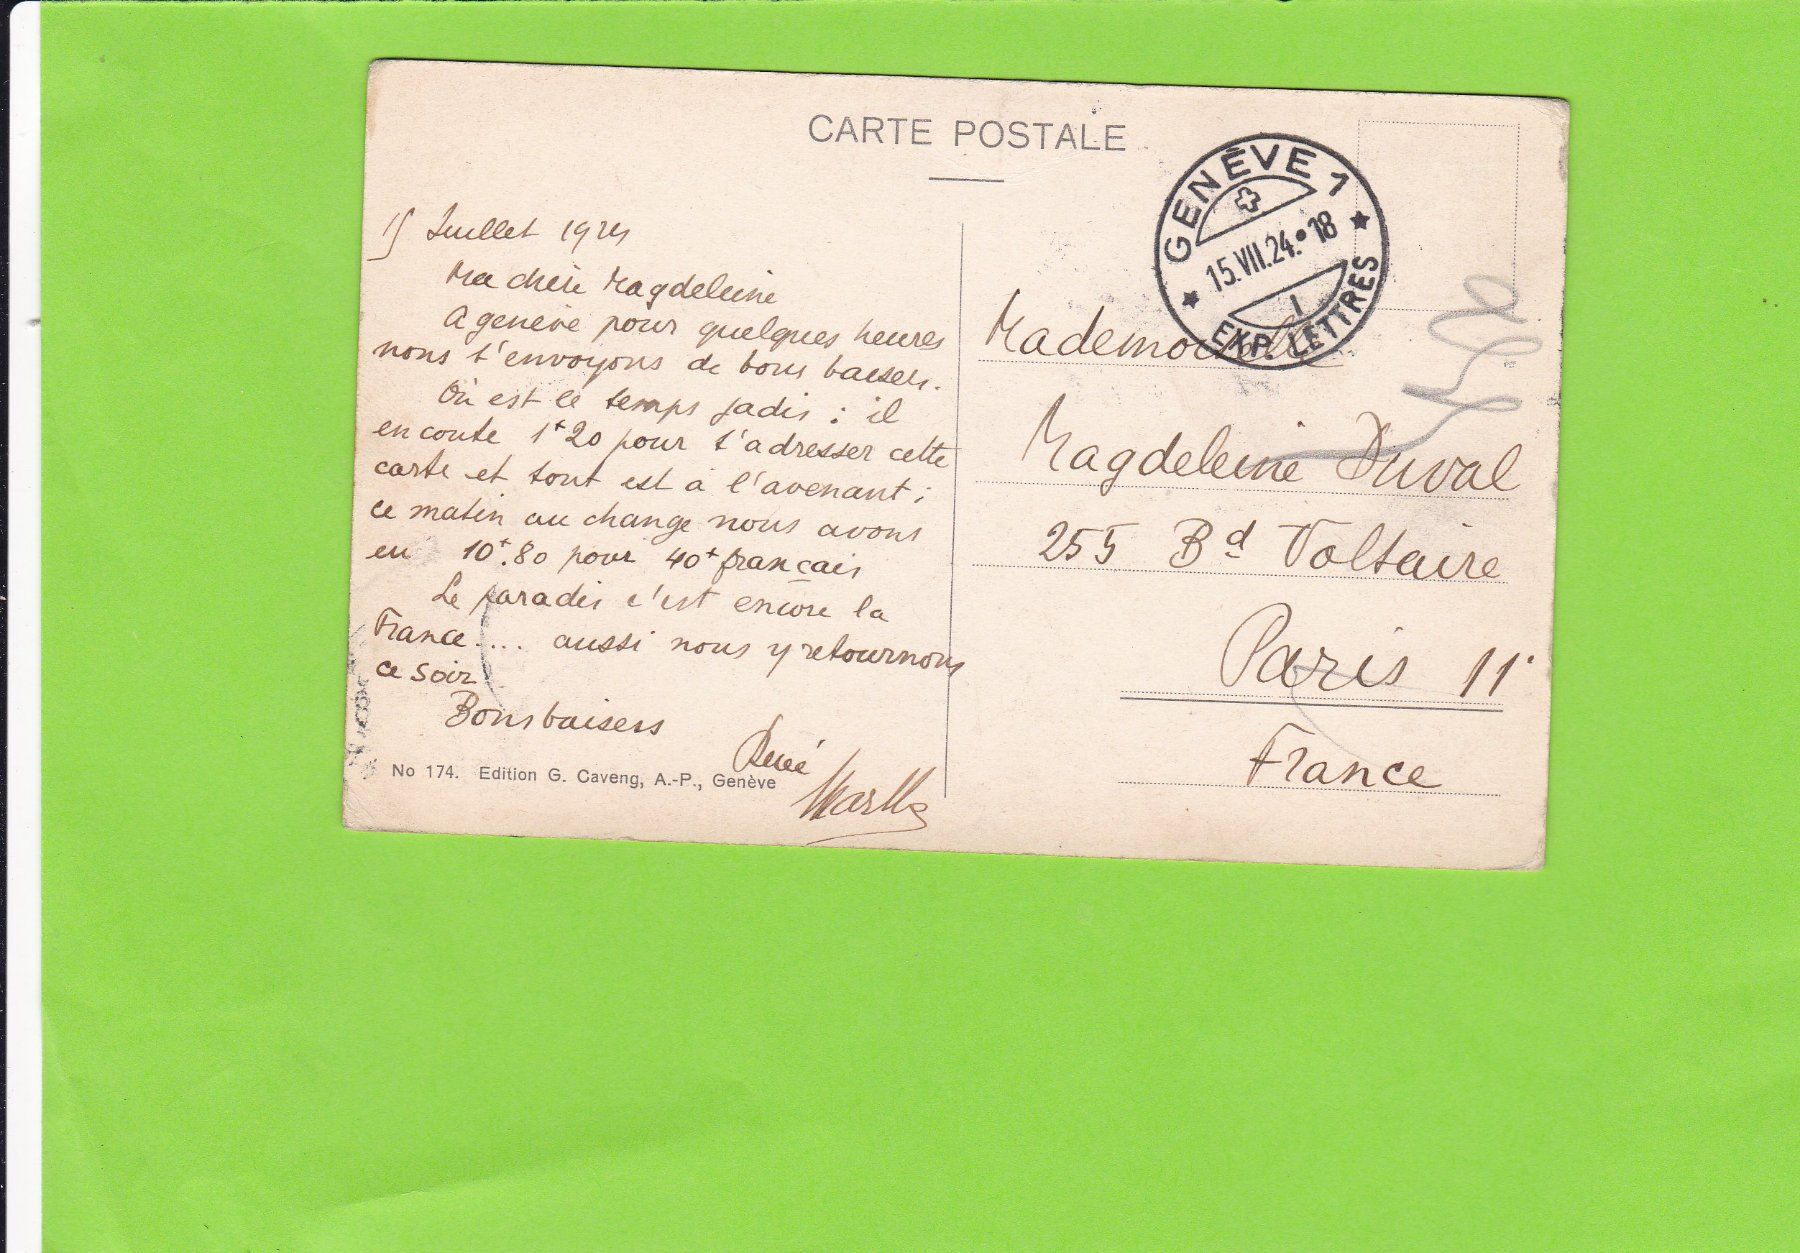 CARTE POSTALE
GENÈVE 1
15.VII.24.•18
EXP. LETTRES
15 Juillet 1924
Ma chère Magdeleine
A genève pour quelques heures
nous t'envoyons de bons baisers.
Où est le temps jadis : il
en coute 1f20 pour t'adresser cette
carte et tout est à l'avenant ;
ce matin au change nous avons
eu 10f.80 pour 40f français
Le paradis c'est encore la
France .... aussi nous y retournons
ce soir
Bons baisers
René
Marthe
No 174. Edition G. Caveng, A.-P., Genève
Mademoiselle
Magdeleine Duval
255 Bd Voltaire
Paris 11e
France